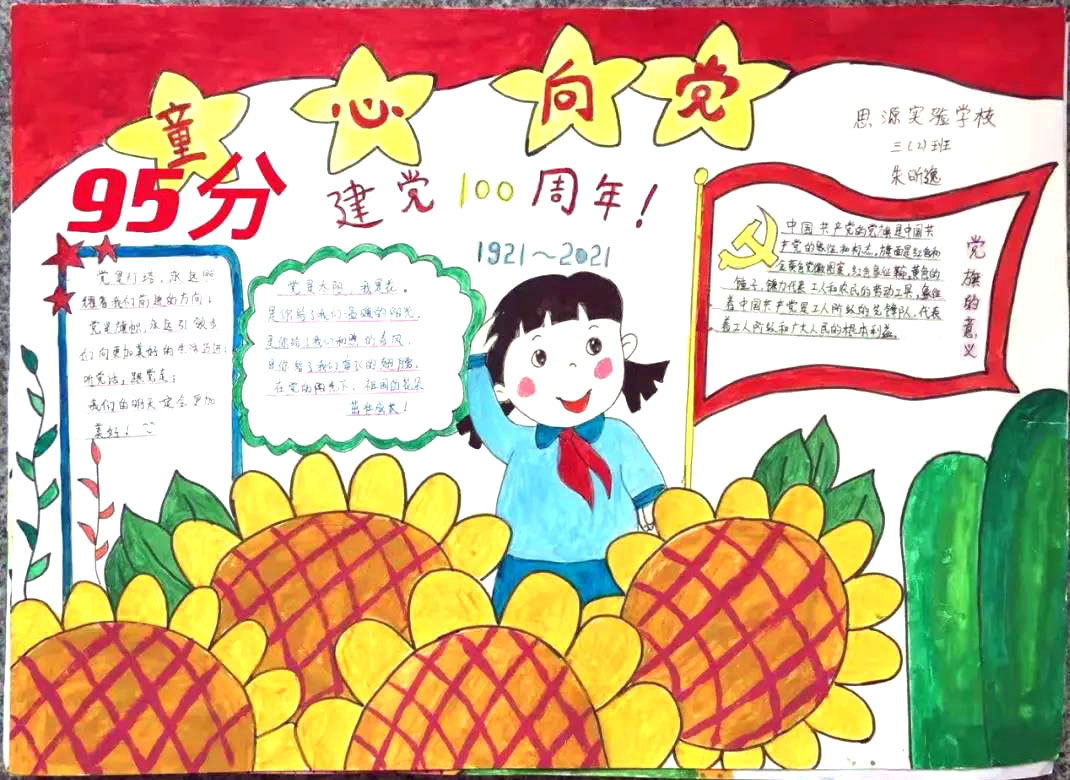 童心向党
95分
建党100周年!
1921~2021
思源实验学校
三(2)班
朱昕逸
党是灯塔,永远照
耀着我们前进的方向;
党是旗帜,永远引领着
们向更加美好的生活迈进;
听党话,跟党走;
我们的明天一定会更加
美好!
党是太阳,我是花。
是你给了我们温暖的阳光,
是你给了我们和煦的春风,
是你给了我们奋飞的翅膀。
在党的阳光下,祖国的花朵
茁壮成长!
党旗的意义
中国共产党的党旗是中国共
产党的象征和标志。旗面是红色和
金黄色党徽图案,红色象征革命,黄色的
锤子、镰刀代表工人和农民的劳动工具,象征
着中国共产党是工人阶级的先锋队,代表
着工人阶级和广大人民的根本利益。